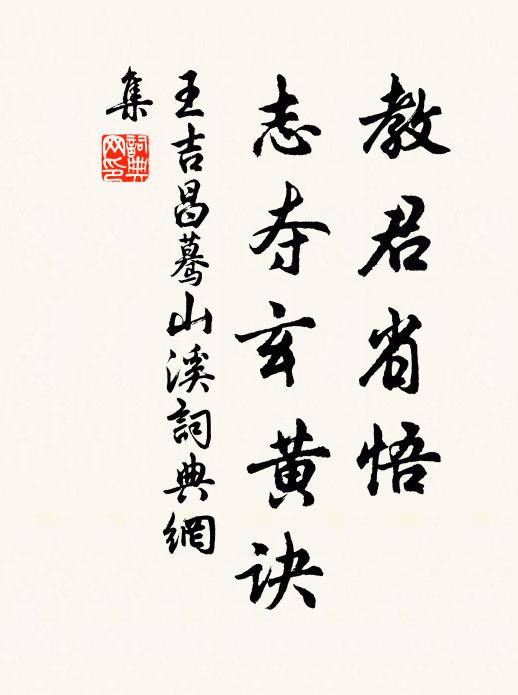 教君省悟
志夺玄黄诀
王吉昌蓦山溪詞典網
集
詞典
网印